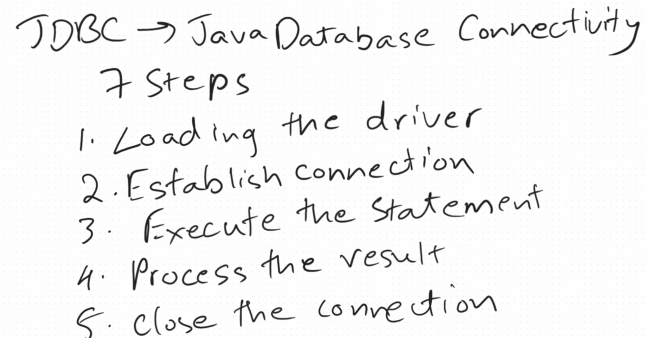 JDBC → Java Database Connectivity
7 Steps
1. Loading the driver
2. Establish connection
3. Execute the statement
4. Process the result
5. close the connection